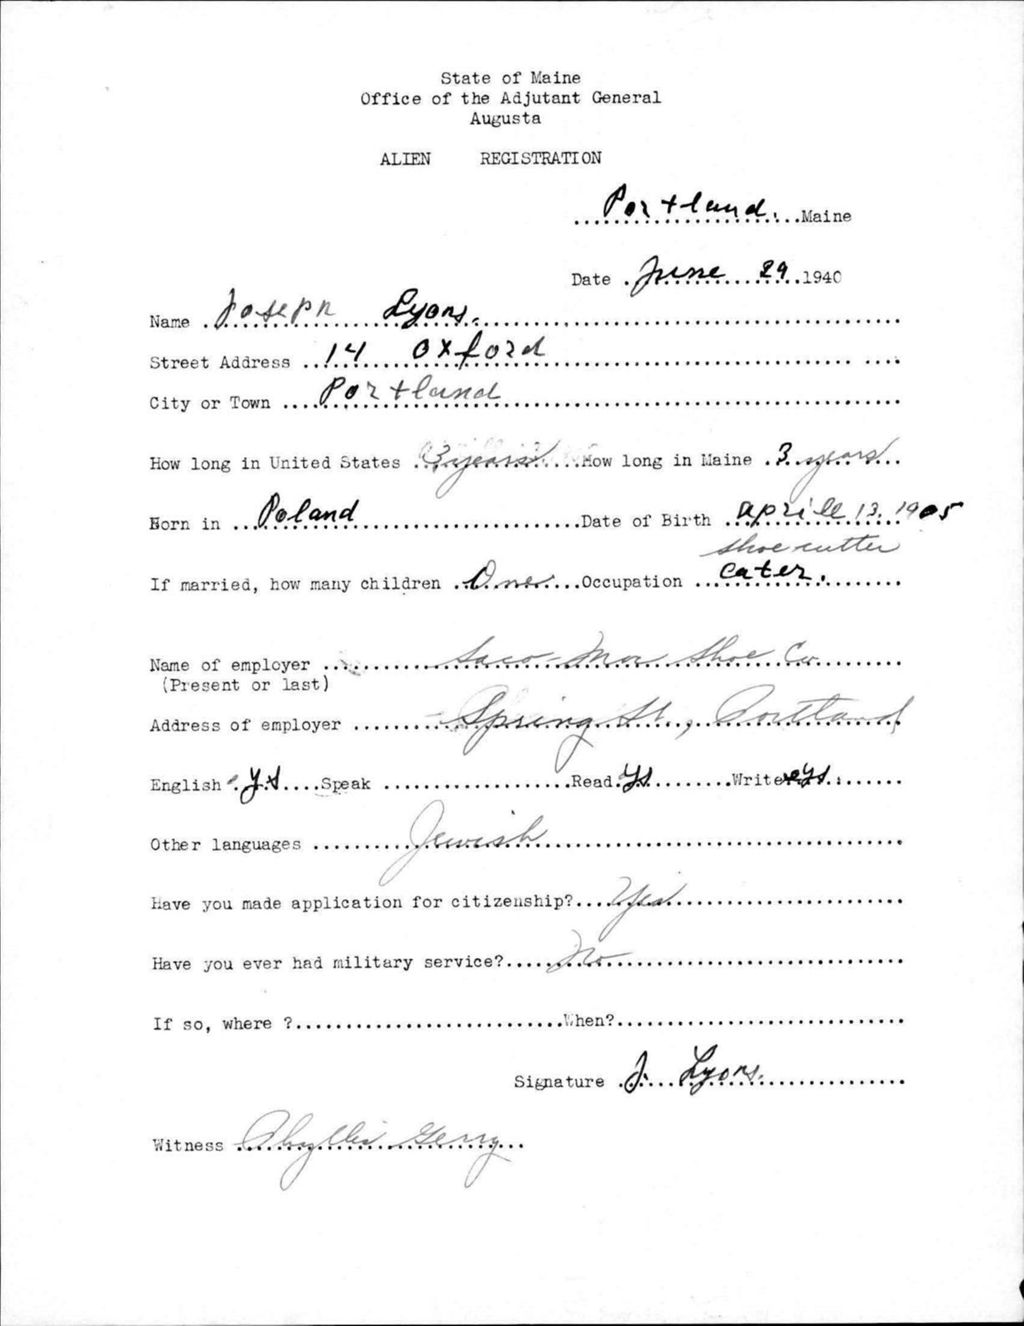 State of Maine
Office of the Adjutant General
Augusta
ALIEN REGISTRATION
Portland, Maine
Date June 29 1940
Name Joseph Lyons.
Street Address 14 Oxford
City or Town Portland
How long in United States 3 years How long in Maine 3 years
Born in Poland Date of Birth aprill 13, 1905
shoe cutter
If married, how many children One Occupation cater.
Name of employer Saco-Moc Shoe Co.
(Present or last)
Address of employer Spring St., Portland
English Ys Speak Read Ys Write Ys
Other languages Jewish
Have you made application for citizenship? Yes
Have you ever had military service? No
If so, where ? When?
Signature J. Lyons.
Witness Phyllis Gerry